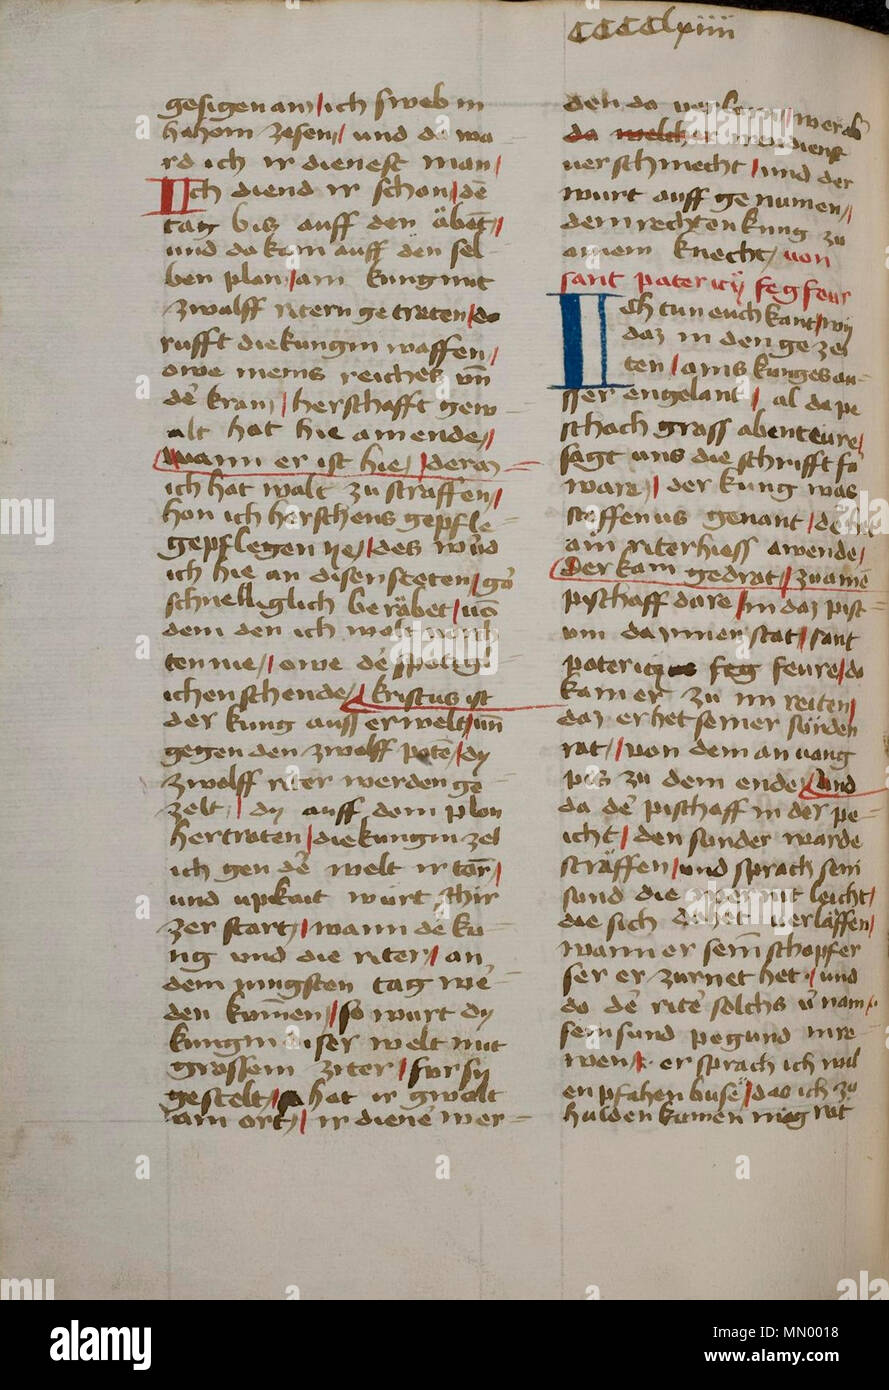 CCCClxiiii
gesigen am / ich sweb in
hahom zesen / und do wa
rd ich ir dienest man /
Ich diend ir schon / dē
tag bis auff den äbēt /
und da kam auff den sel
ben plon / am kung mit
zwalff ritern getreten / do
rufft die kungin waffen /
owe meins reiches vn̄
der kran / herschafft gew
alt hat hie am ende /
wann er ist hie / der
ich hat walt zu straffen /
hon ich herschens gepfle
gepflegen ye / des würd
ich hie an disen steten /
schnelliglich beräbet / vō
dem den ich wolt
ten nie / owe
ichen schende / kristus ist
der kung auss erwelt / un̄
gegen den zwolff poten / dy
zwalff riter werden ge
zelt / dy auff dem plon
hertraten / die kungin zel
ich gen der welt ir tor /
und upkait würt
zer start / wann de ku
ng und die riter / an
dem jungsten tag we
den kumen / so wurt dy
kungin diser welt mit
grossem ziter / fur sy
gestelt / hat ir gwalt
am ort / ir diener wer
den da verlorn / wer ab
da welcher mendienst
verschmecht / und der
wurt auff genumen /
dem rechten kung zu
ainem knecht / von
sant patericy fegfeur
Ich tun euch kant / wy
daz in den geze
ten / ains kunges au
sser engelant / al da pe
schach gross abenteure /
sagt uns die schrifft fo
ware / der kung was
stoffenus genant / de
ain riter hiess awende /
Der kam gedrat / zu aine
pyschaff dare / in daz pist
um da inner stat / sant
patericy feg feure / do
kam er zu im reiten /
daz er het seiner sünden
rat / von dem anvang
pis zu dem ende / und
da de pischaff in der pe
icht / den sunder warde
sträffen / und sprach sein
sund die wer nit leicht /
die sich da het verläffen /
wann er sein schopfer
ser er zurnet het / und
do de riter solchs v nam /
sein sund pegund in re
wen / er sprach ich wil
enpfahen buse / das ich zu
hulden kumen mög rat
alamy
Image ID: MN0018
www.alamy.com